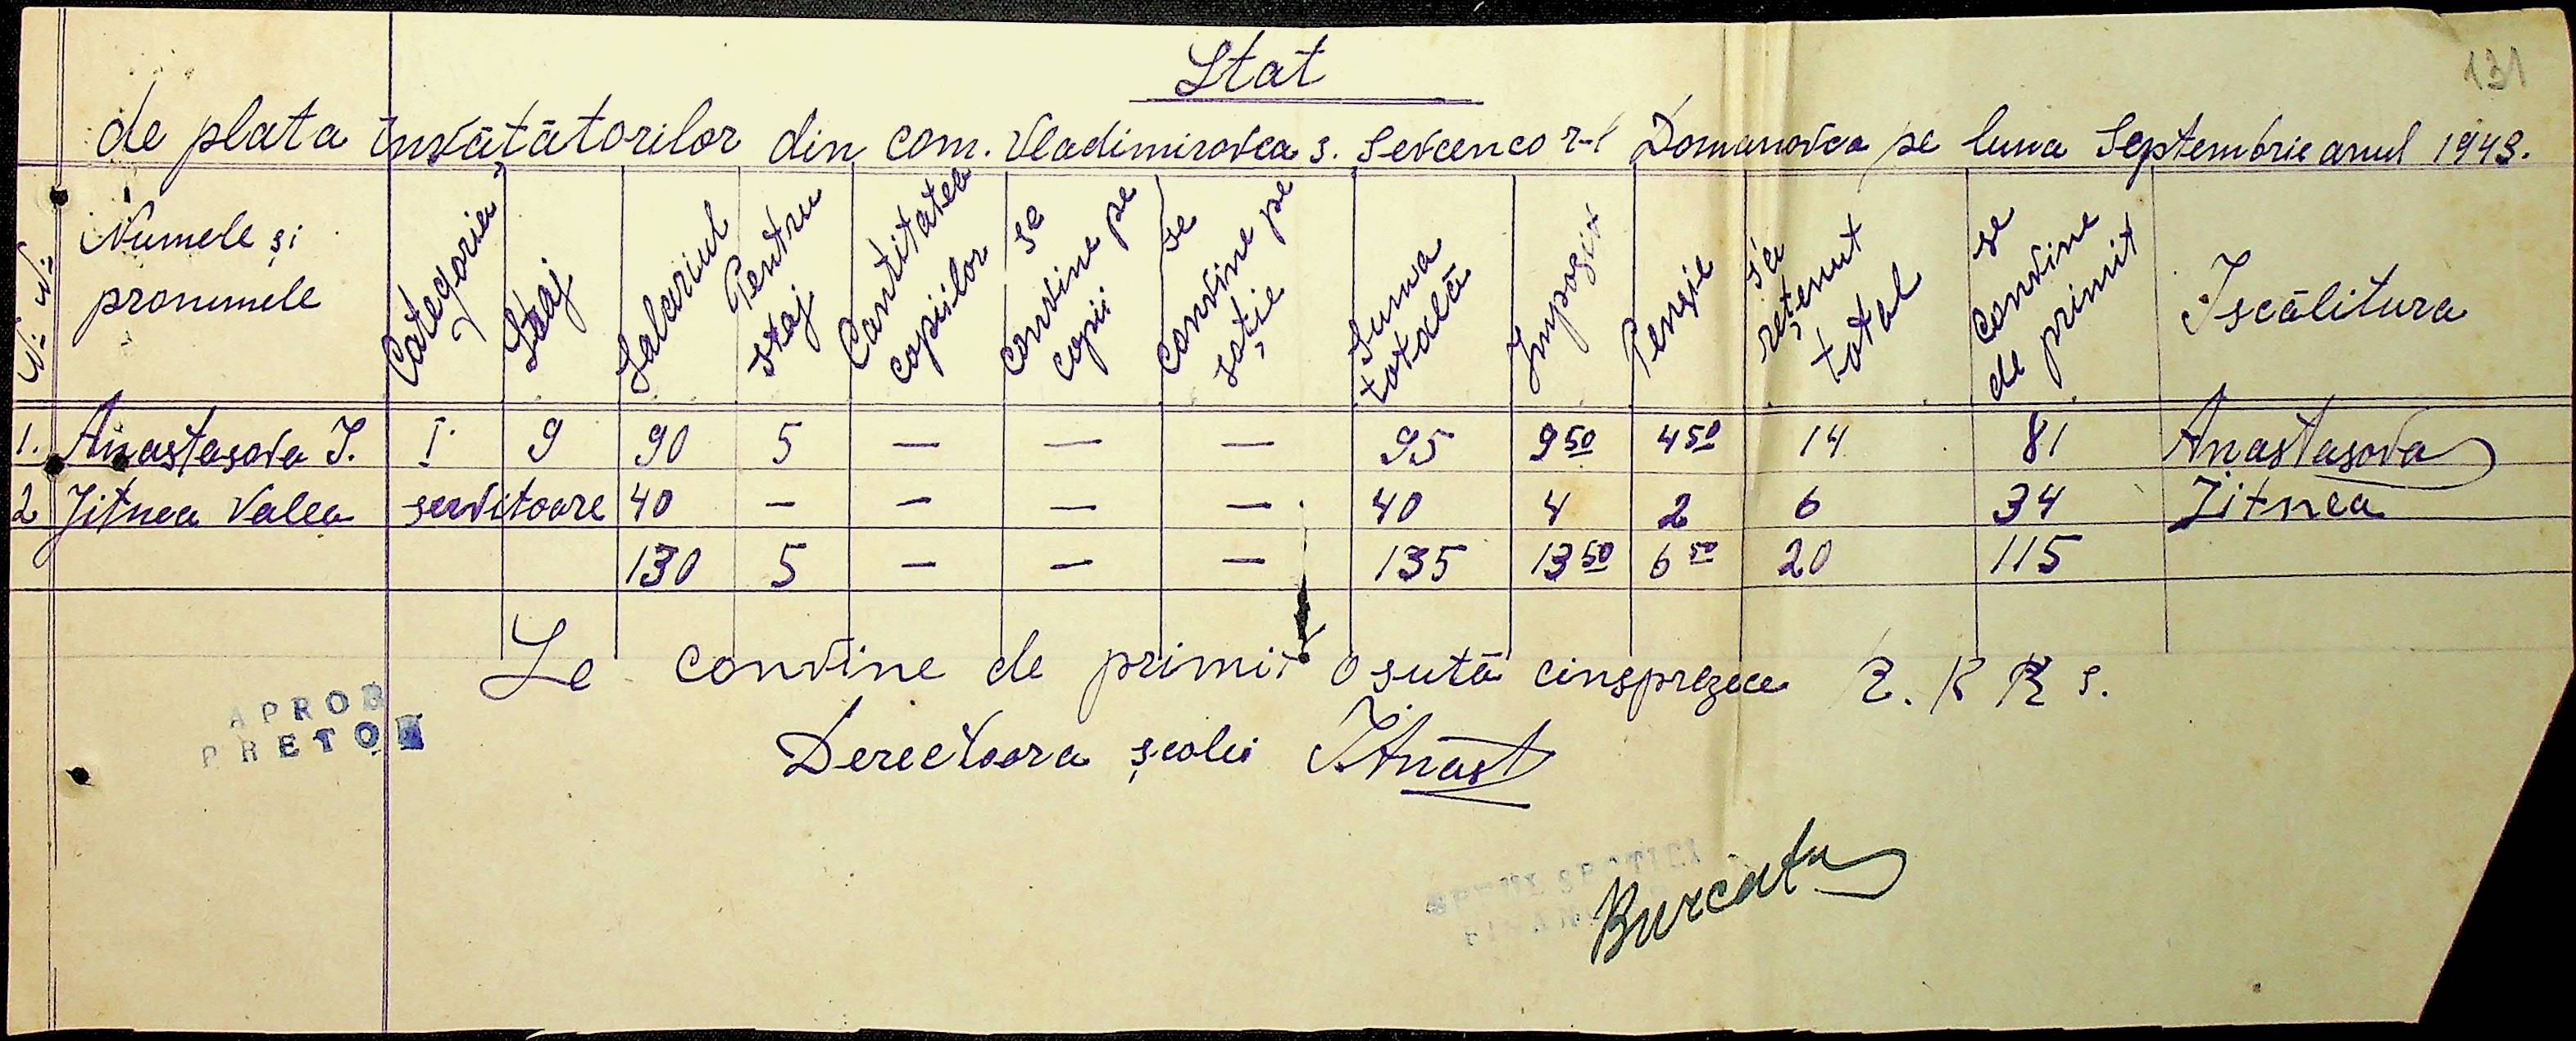 131
Stat
de plata învătătorilor din com. Vladimirovca s. Sevcenco r-l Domanovca pe luna Septembrie anul 1943.
№ № | Numele și pronumele | Categoria | Staj | Salariul | Pentru staj | Cantitatea copiilor | se convine pe copii | se convine pe soție | Suma totală | Impozit | Pensie | s'a reținut total | se convine de primit | Iscălitura
1. | Anastasova I. | I | 9 | 90 | 5 | — | — | — | 95 | 9 50 | 4 50 | 14 | 81 | Anastasova
2 | Jitnea Valea | servitoare | 40 | - | - | — | — | 40 | 4 | 2 | 6 | 34 | Jitnea
130 | 5 | — | — | — | 135 | 13 50 | 6 50 | 20 | 115
Se convine de primit o sută cinsprezece R. K K S.
APROB
PRETOR
Derectoara școlei I Anast
FINAN
Burcatu